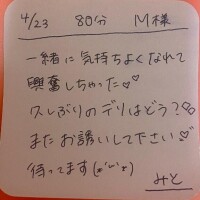 4/23 80分 M様
一緒に気持ちよくなれて
興奮しちゃった♡♡
久しぶりのデリはどう?
またお誘いして下さい
待ってます
みと